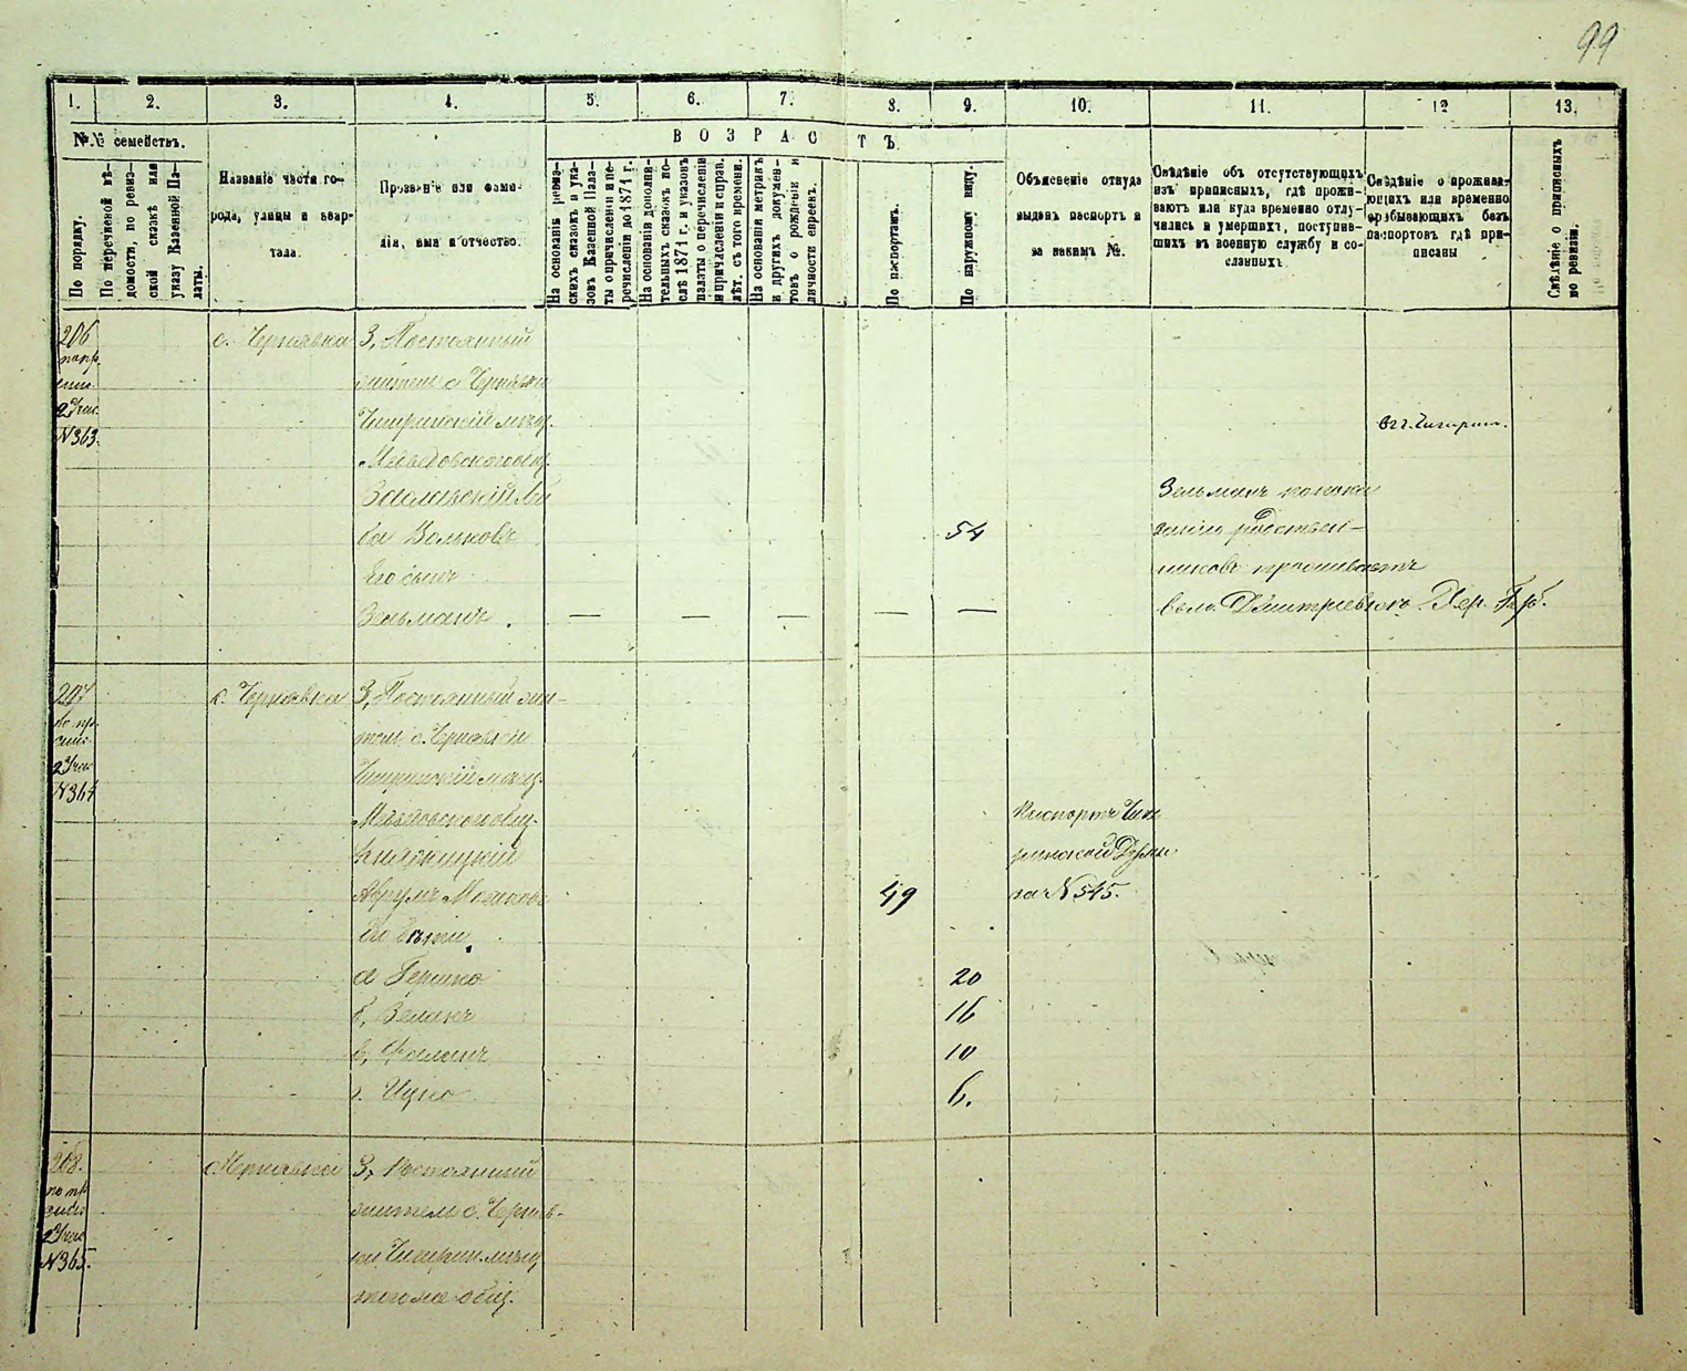 99
1. 2. 3. 4. 5. 6. 7. 8. 9. 10. 11. 12 13.
№№ семействъ.
По порядку.
По перечневой вѣ-
домости, по ревиз-
ской сказкѣ или
указу Казенной Па-
латы.
Названіе части го-
рода, улицы и квар-
тала.
Прозваніе или фами-
лія, имя и отчество.
ВОЗРАСТЪ.
На основаніи ревиз-
скихъ сказокъ и ука-
зовъ Казенной Пала-
ты о причисленіи и пе-
речисленіи до 1871 г.
На основаніи дополни-
тельныхъ сказокъ по-
слѣ 1871 г. и указовъ
палаты о перечисленіи
и причисленіи и исправ.
лѣт. съ того времени.
На основаніи метрикъ
и другихъ докумен-
товъ о рожденіи и
личности евреевъ.
По паспортамъ.
По наружному виду.
Объясненіе откуда
выданъ паспортъ и
за какимъ №.
Свѣдѣніе объ отсутствующихъ
изъ приписныхъ, гдѣ прожи-
ваютъ или куда временно отлу-
чились и умершихъ, поступив-
шихъ въ военную службу и со-
сланныхъ
Свѣдѣніе о прожива-
ющихъ или временно
прибывающихъ безъ
паспортовъ гдѣ при-
писаны
Свѣдѣніе о приписныхъ
по ревизіи.
206
2 Учас.
N363.
с. Чернявка
3, Постоянный
житель с Чернявки
Чигиринскій мѣщ.
Медведовского общ.
Волковъ
54
Его сынъ
Зельманъ
— — — — —
Зельманъ по пока
занію родствен-
никовъ проживаетъ
Дмитріевкого Хер. Губ.
въ г. Чигирин.
207
2 Учас
N364
с. Чернявка
3, Постоянный жи-
тель с. Чернявки
Чигиринскій мѣщ.
Медведовского общ.
Аврумъ Мошковъ
49
Паспортъ Чиги
ринской Думы
за N 545.
Его дѣти
а Гершко
20
б, Зельикъ
16
в,
10
г. Ицко
6.
208.
2 Учас
N365.
с. Чернявка
3, Постоянный
житель с. Черняв-
ки Чигирин. мѣщ
того же общ.